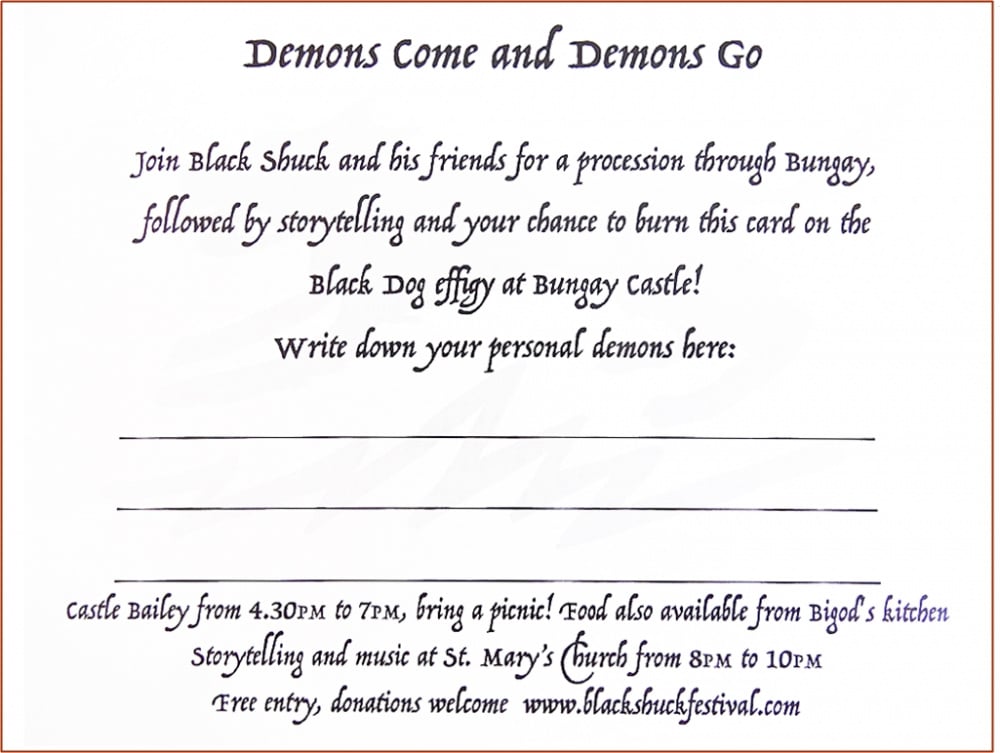 Demons Come and Demons Go
Join Black Shuck and his friends for a procession through Bungay,
followed by storytelling and your chance to burn this card on the
Black Dog effigy at Bungay Castle!
Write down your personal demons here:
Castle Bailey from 4.30PM to 7PM, bring a picnic! Food also available from Bigod's kitchen
Storytelling and music at St. Mary's Church from 8PM to 10PM
Free entry, donations welcome www.blackshuckfestival.com